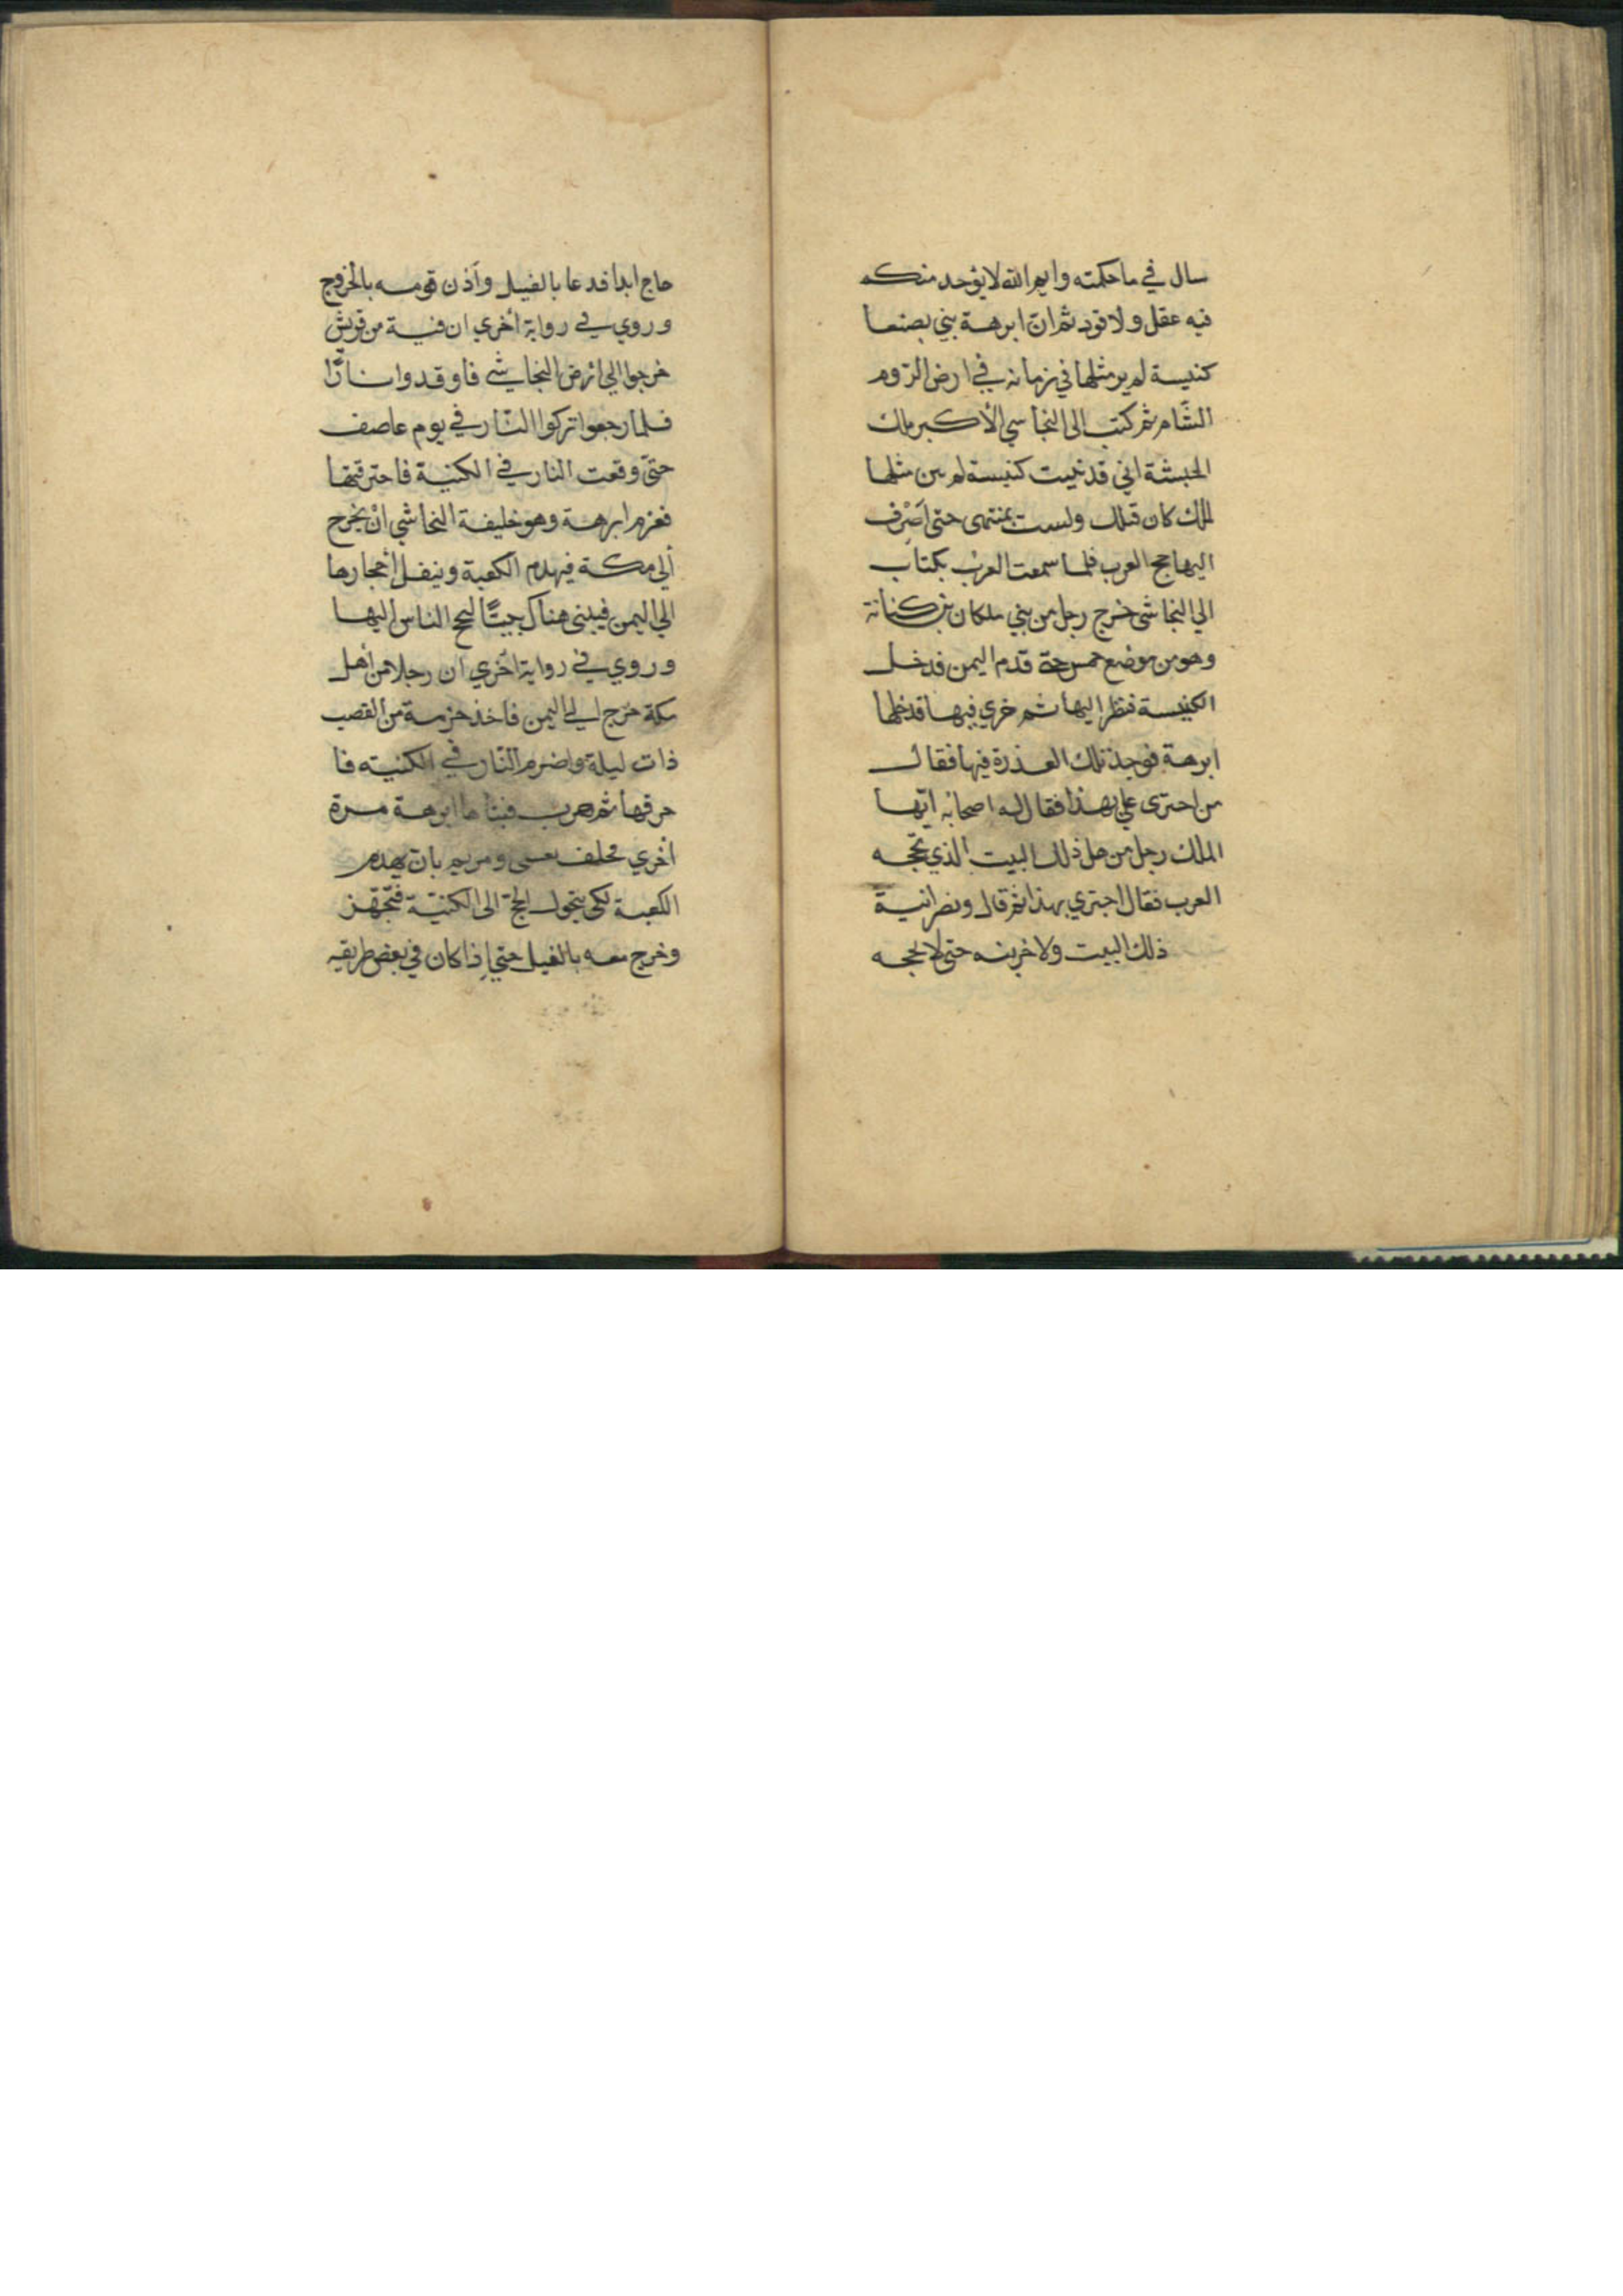 سال في ما حكمته وايم الله لا يؤخد منكم
فيه عقل ولا قود ثم ان ابرهة بني بصنعا
كنيسة لم ير مثلها في زمانه في ارض الروم
الشام ثم كتب الى النجاسي الأكبر ملك
الحبشة اني قد بنيت كنيسة لم يبن مثلها
لملك كان قبلك ولست بمنتهى حتى اصرف
اليها حج العرب فلما سمعت العرب بكتاب
الي النجاشى خرج رجل من بني ملكان بن كنانة
وهو من موضع حمس حتى قدم اليمن فدخل
الكنيسة فنظر اليها ثم خري فيها فدخلها
ابرهة فوجد تلك العذرة فيها فقال
من اجترى علي بهذا فقال له اصحابه ايها
الملك رجل من اهل ذلك البيت الذي تحجه
العرب فقال اجتري بهذا ثم قال ونصرانية
ذلك البيت ولاخربنه حتى لا يحجه
حاج ابدا فدعا بالفيل وأذن قومه بالخروج
وروي في رواية أخري ان فية من قريش
خرجوا الي ارض النجاشي فاوقدوا نارًا
فلما رجعوا تركوا النار في يوم عاصف
حتى وقعت النار في الكنيسة فاحترقتها
فعزم ابرهة وهو خليفة النجاشي ان يخرج
الي مكة فيهدم الكعبة وينقل أحجارها
الي اليمن فيبنى هناك بيتًا ليحج الناس اليها
وروي في رواية اخري ان رجلا من أهل
مكة خرج الي اليمن فاخذ حزمة من القصب
ذات ليلة واضرم النار في الكنيسه فا
حرقها ثم هرب فبناها ابرهة مرة
اخري فحلف بعيسى ومريم بان يهدم
الكعبة لكى يتحول الحج الى الكنيسة فتجهز
وخرج معه بالفيل حتي إذا كان في بعض طريقه